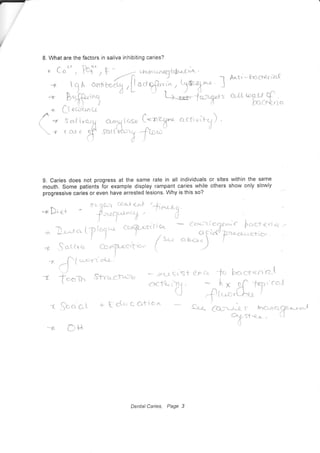 8. What are the factors in saliva inhibiting caries?
immunoglobulin.
IgA antibody, [lactoferrin, lysozyme] Anti-bacterial
Buffering targets cell wall of bacteria
Clearance
Salivary amylase (enzyme activity).
rate of salivary flow
9. Caries does not progress at the same rate in all individuals or sites within the same
mouth. Some patients for example display rampant caries while others show only slowly
progressive caries or even have arrested lesions. Why is this so?
sugar content timing
Diet - frequency.
Dental plaque composition - cariogenic bacteria
acid production
Saliva composition (see above)
fluoride
Tooth structure - resistance to bacterial
activity. - hx of topical
fluoride
Social + Education - see caries management
system.
OH
Dental Caries, Page 3